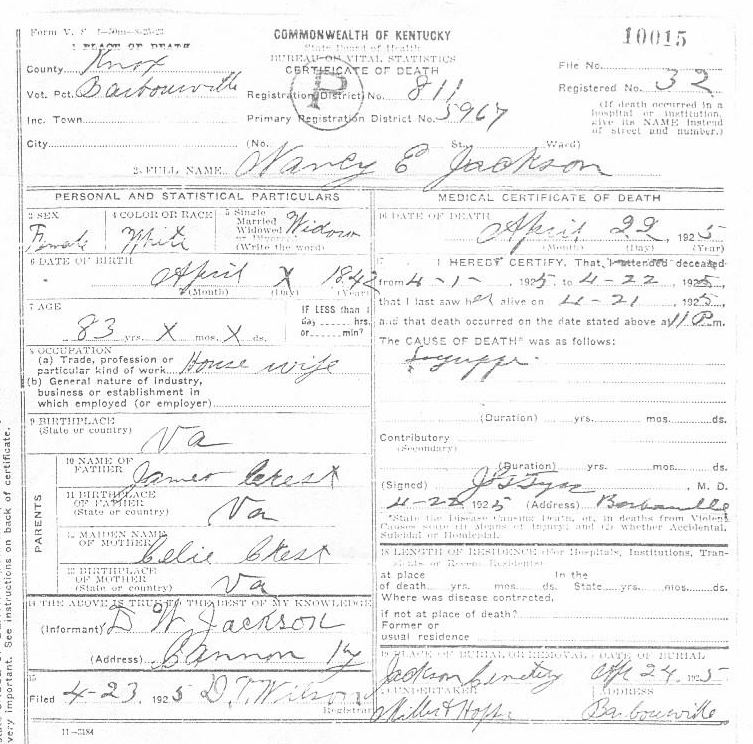 Form V. S. 1-50m-8-25-23
COMMONWEALTH OF KENTUCKY
State Board of Health
BUREAU OF VITAL STATISTICS
CERTIFICATE OF DEATH
10015
1 PLACE OF DEATH
County Knox
Vot. Pct. Barbourville
Inc. Town
City
P
Registration District No. 811
Primary Registration District No. 5967
(No. St., Ward)
File No.
Registered No. 32
(If death occurred in a
hospital or institution,
give its NAME instead
of street and number.)
2 FULL NAME Nancy E Jackson
PERSONAL AND STATISTICAL PARTICULARS
3 SEX
Female
4 COLOR OR RACE
White
5 Single
Married
Widowed
or Divorced
(Write the word)
Widow
6 DATE OF BIRTH
April X 1842
(Month) (Day) (Year)
7 AGE
83 yrs. X mos. X ds.
IF LESS than 1
day hrs.
or min?
8 OCCUPATION
(a) Trade, profession or
particular kind of work House wife
(b) General nature of industry,
business or establishment in
which employed (or employer)
9 BIRTHPLACE
(State or country)
Va
PARENTS
10 NAME OF
FATHER
James
11 BIRTHPLACE
OF FATHER
(State or country)
Va
12 MAIDEN NAME
OF MOTHER
Celie
13 BIRTHPLACE
OF MOTHER
(State or country)
Va
14 THE ABOVE IS TRUE TO THE BEST OF MY KNOWLEDGE
(Informant) D W Jackson
(Address) Cannon Ky
15
Filed 4-23, 1925 D. T. Wilson
Registrar
11-3184
MEDICAL CERTIFICATE OF DEATH
16 DATE OF DEATH
April 22 1925
(Month) (Day) (Year)
17 I HEREBY CERTIFY, That I attended deceased
from 4-1-, 1925, to 4-22, 1925,
that I last saw her alive on 4-21, 1925,
and that death occurred on the date stated above at 11 P.m.
The CAUSE OF DEATH* was as follows:
(Duration) yrs. mos. ds.
Contributory
(Secondary)
(Duration) yrs. mos. ds.
(Signed) M. D.
4-22 1925 (Address) Barbourville
*State the Disease Causing Death, or, in deaths from Violent
Causes state (1) Means of Injury; and (2) whether Accidental,
Suicidal or Homicidal.
18 LENGTH OF RESIDENCE (For Hospitals, Institutions, Tran-
sients or Recent Residents)
at place In the
of death yrs. mos. ds. State yrs. mos. ds.
Where was disease contracted,
if not at place of death?
Former or
usual residence
19 PLACE OF BURIAL OR REMOVAL DATE OF BURIAL
Jackson Cemetery Apr 24, 1925
20 UNDERTAKER ADDRESS
Barbourville
very important. See instructions on back of certificate.